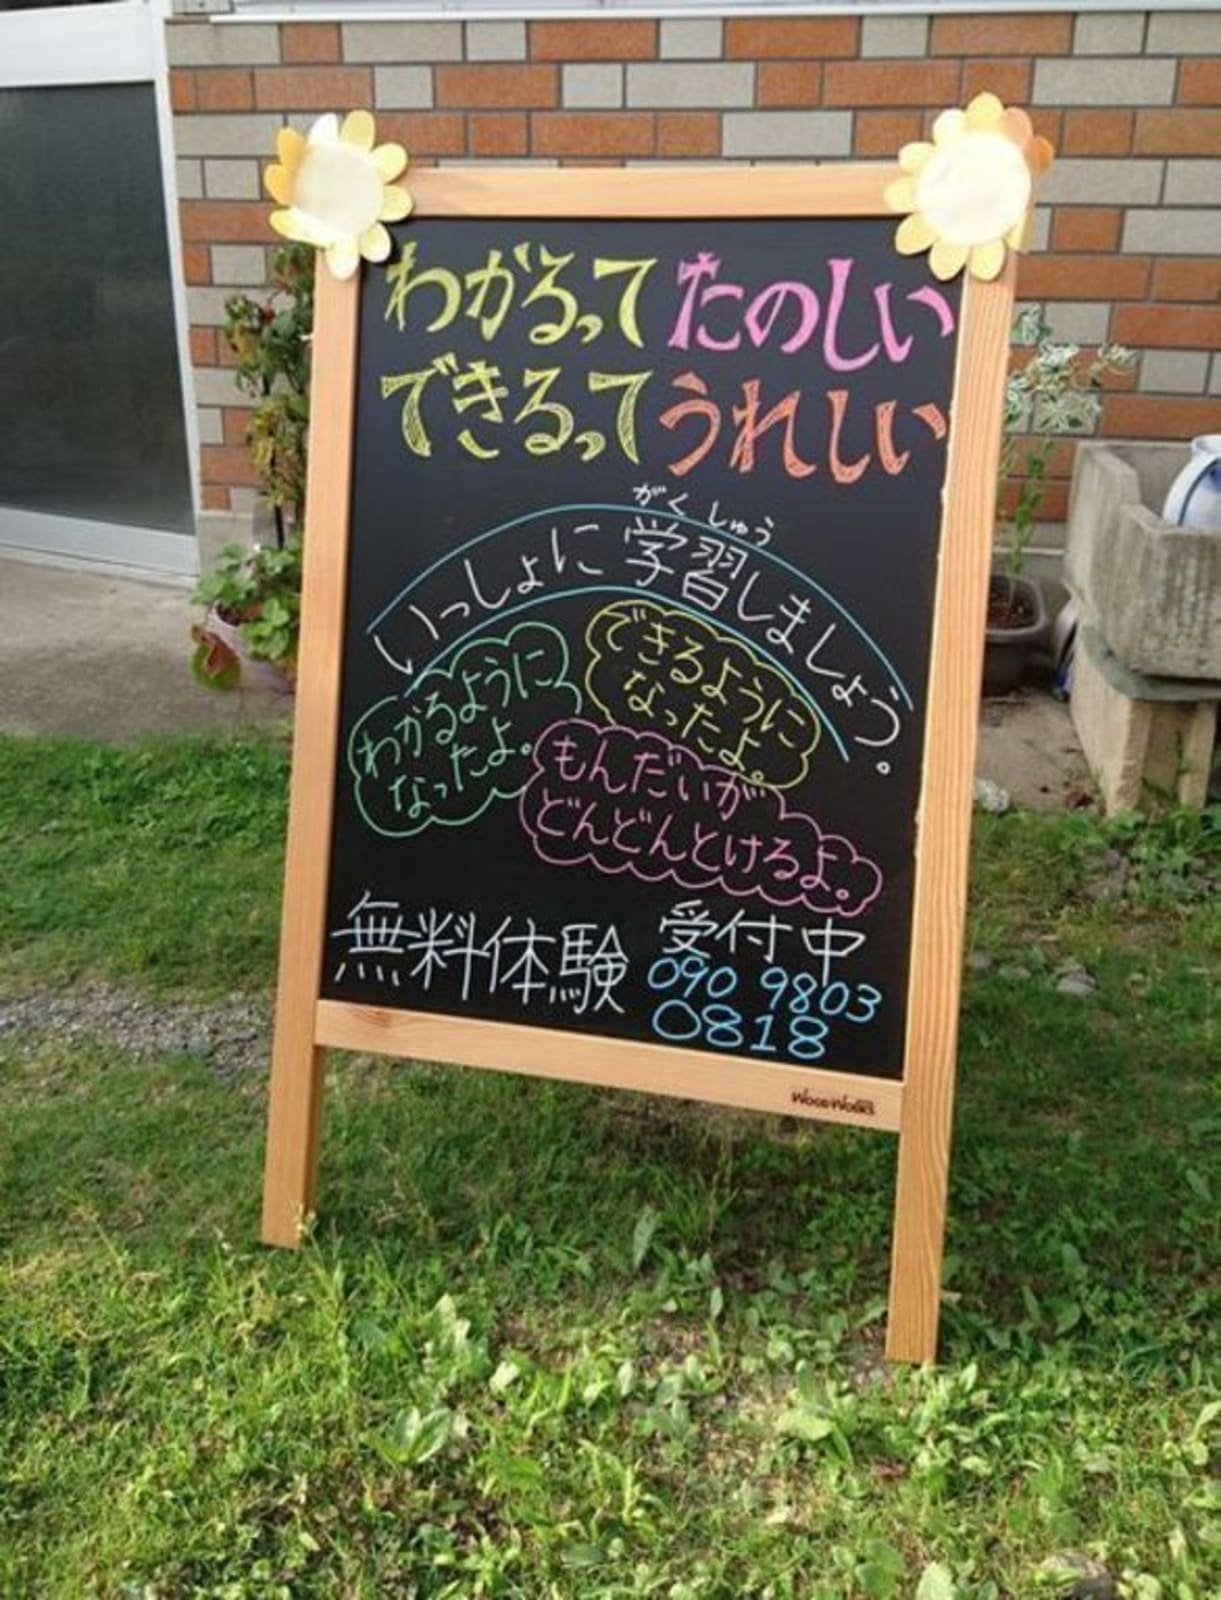 わかるって たのしい
できるって うれしい
がくしゅう
いっしょに 学習しましょう。
わかるように
なったよ。
できるように
なったよ。
もんだいが
どんどんとけるよ。
無料体験 受付中
090 9803
0818
WOODWORKS